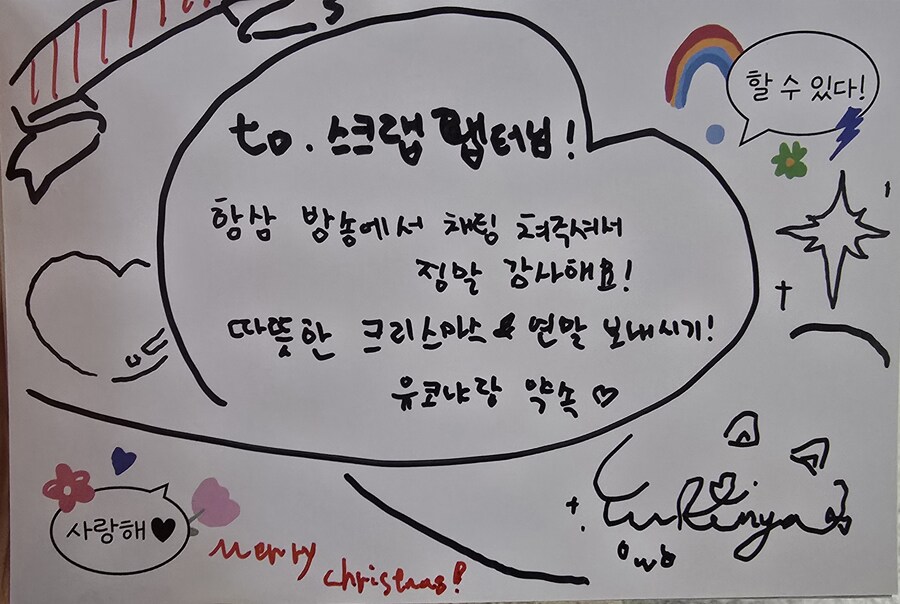 할 수 있다!
to. 스크랩 랩터님!
항상 방송에서 채팅 쳐주셔서
정말 감사해요!
따뜻한 크리스마스 & 연말 보내시기!
유코냐랑 약속 ♡
사랑해♥
Merry
christmas!
Yukonya
owo